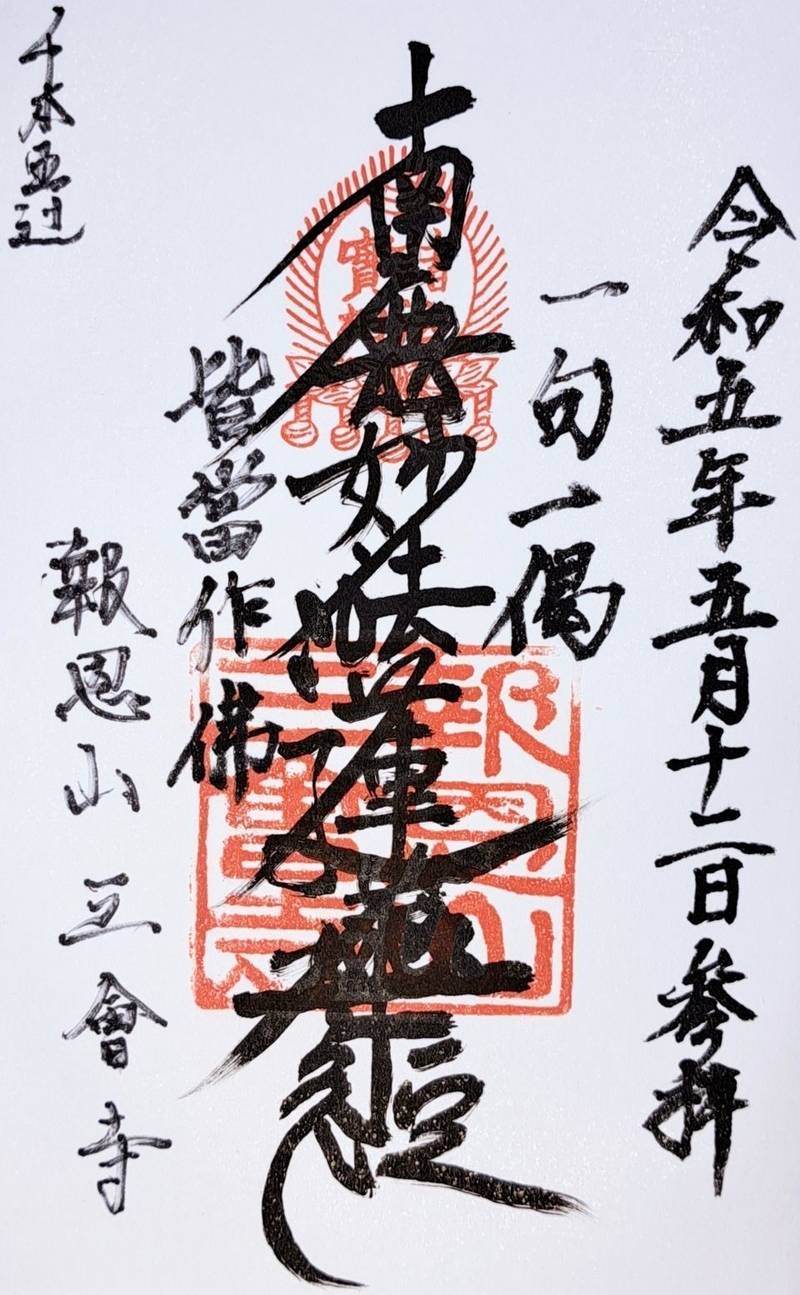 令和五年五月十二日参拝
一句一偈
南無妙法蓮華經
皆當作佛
千本五辻
報恩山 三會寺
報恩山
三會寺